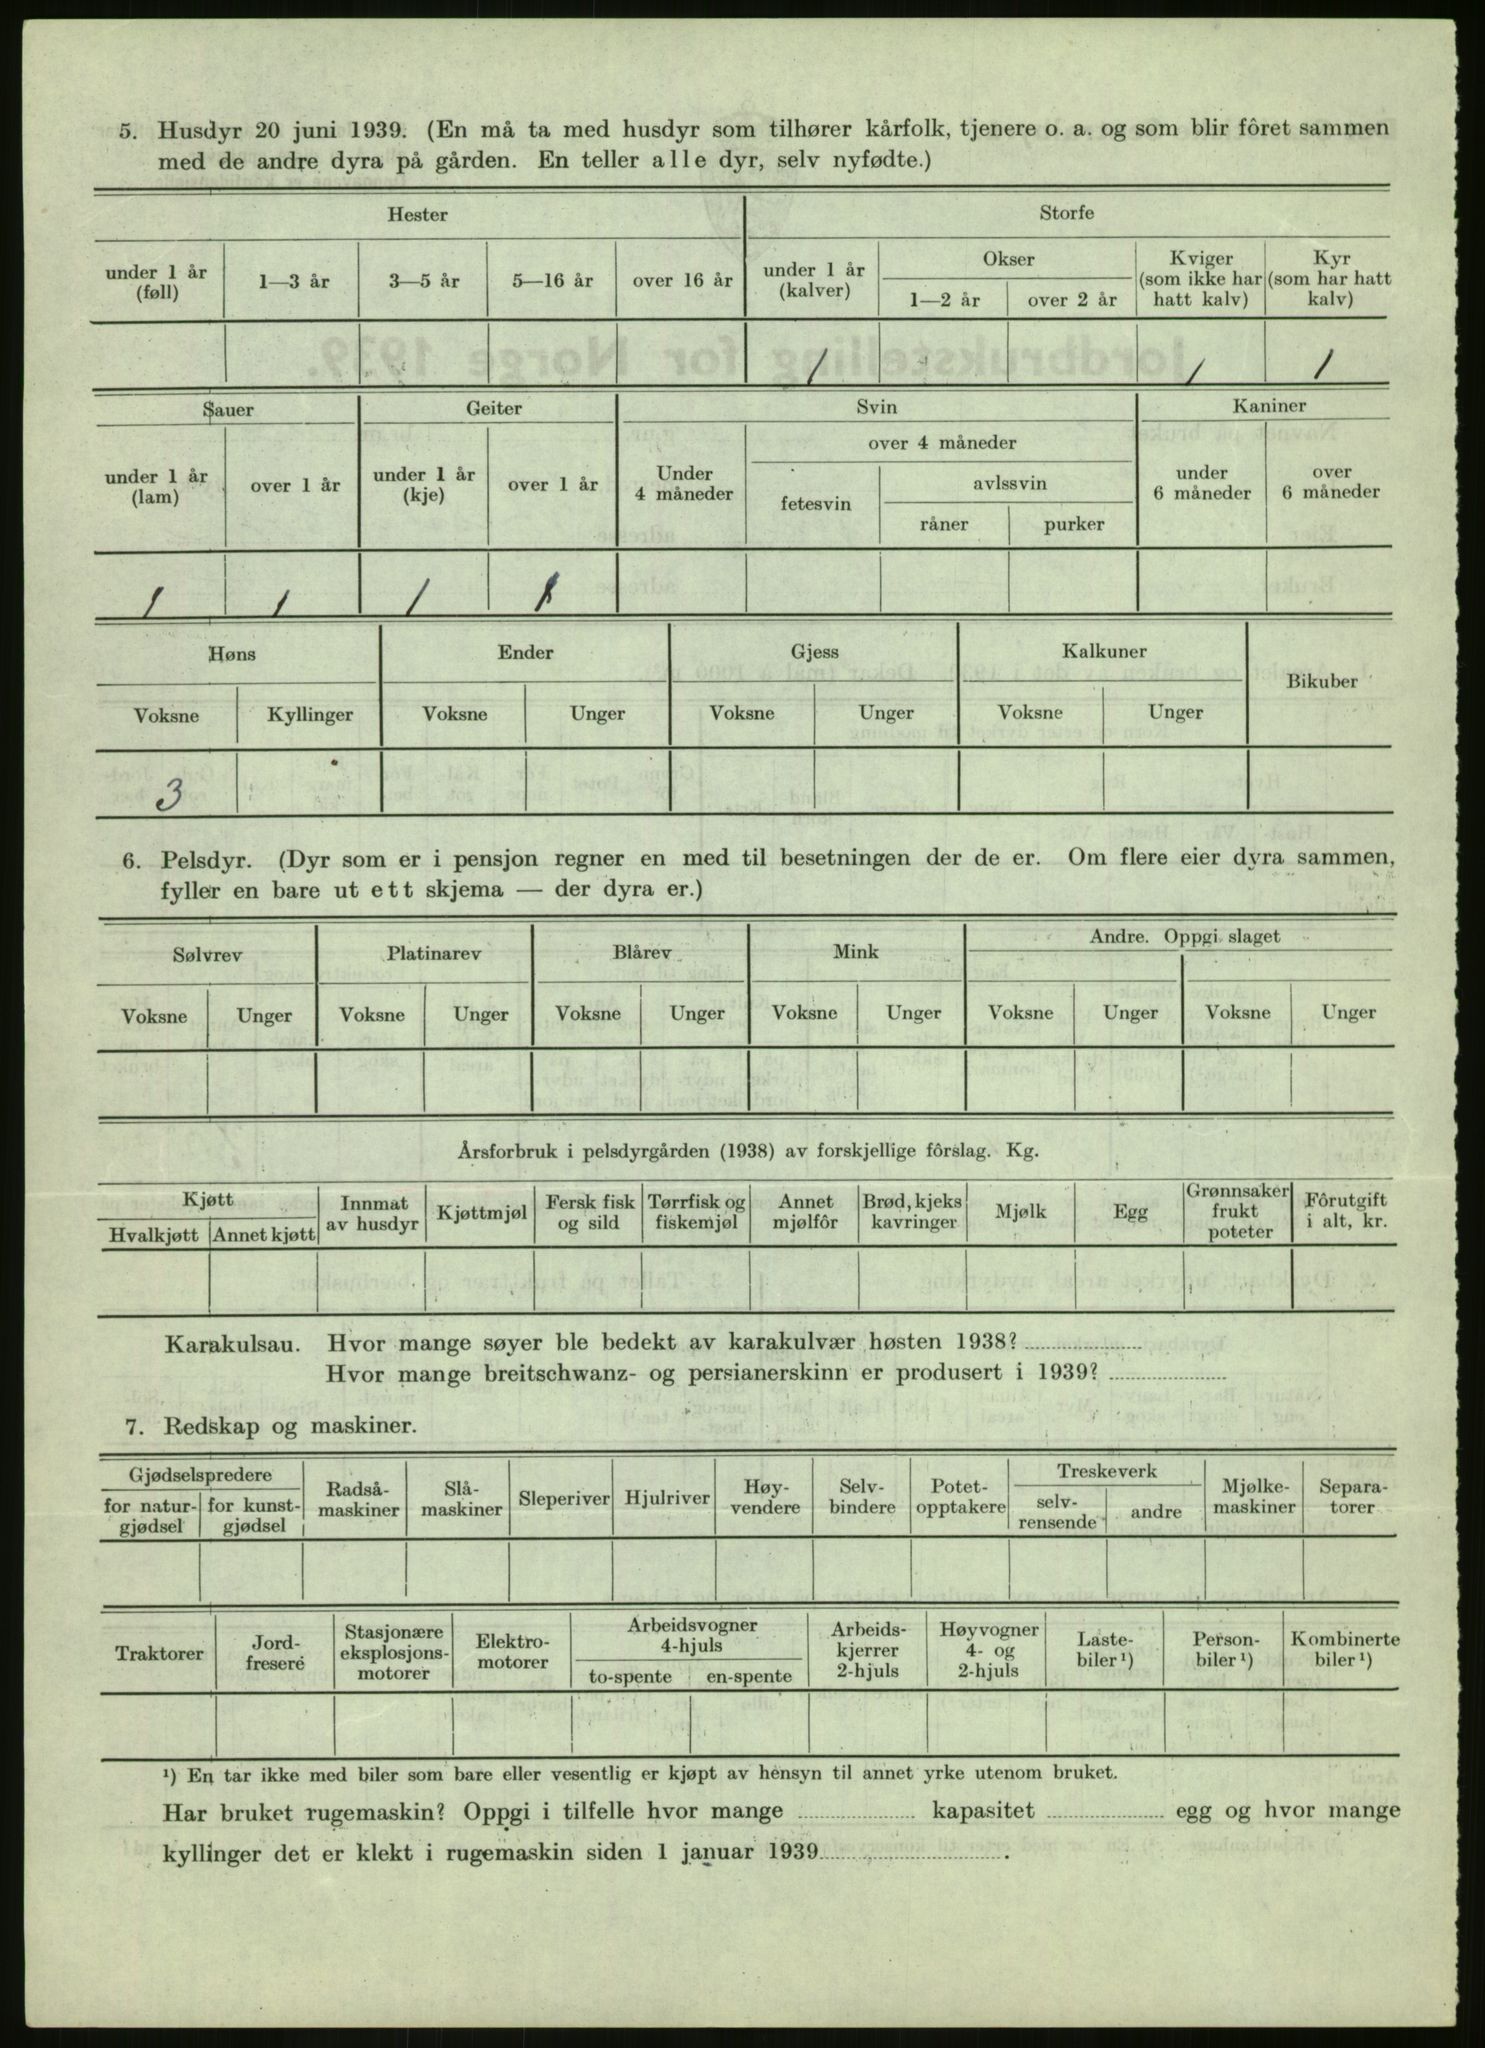 5. Husdyr 20 juni 1939. (En må ta med husdyr som tilhører kårfolk, tjenere o. a. og som blir fôret sammen
med de andre dyra på gården. En teller alle dyr, selv nyfødte.)
Hester Storfe
under 1 år (føll) 1—3 år 3—5 år 5—16 år over 16 år under 1 år (kalver) Okser 1—2 år over 2 år Kviger (som ikke har hatt kalv) Kyr (som har hatt kalv)
1 1 1
Sauer Geiter Svin Kaniner
under 1 år (lam) over 1 år under 1 år (kje) over 1 år Under 4 måneder over 4 måneder fetesvin avlssvin råner purker under 6 måneder over 6 måneder
1 1 1 1
Høns Ender Gjess Kalkuner Bikuber
Voksne Kyllinger Voksne Unger Voksne Unger Voksne Unger
3
6. Pelsdyr. (Dyr som er i pensjon regner en med til besetningen der de er. Om flere eier dyra sammen,
fyller en bare ut ett skjema — der dyra er.)
Sølvrev Platinarev Blårev Mink Andre. Oppgi slaget
Voksne Unger Voksne Unger Voksne Unger Voksne Unger Voksne Unger Voksne Unger
Årsforbruk i pelsdyrgården (1938) av forskjellige fôrslag. Kg.
Kjøtt Hvalkjøtt Annet kjøtt Innmat av husdyr Kjøttmjøl Fersk fisk og sild Tørrfisk og fiskemjøl Annet mjølfôr Brød, kjeks kavringer Mjølk Egg Grønnsaker frukt poteter Fôrutgift i alt, kr.
Karakulsau. Hvor mange søyer ble bedekt av karakulvær høsten 1938?
Hvor mange breitschwanz- og persianerskinn er produsert i 1939?
7. Redskap og maskiner.
Gjødselspredere for natur-gjødsel for kunst-gjødsel Radså-maskiner Slå-maskiner Sleperiver Hjulriver Høy-vendere Selv-bindere Potet-opptakere Treskeverk selv-rensende andre Mjølke-maskiner Separa-torer
Traktorer Jord-fresere Stasjonære eksplosjons-motorer Elektro-motorer Arbeidsvogner 4-hjuls to-spente en-spente Arbeids-kjerrer 2-hjuls Høyvogner 4- og 2-hjuls Laste-biler ¹) Person-biler ¹) Kombinerte biler ¹)
¹) En tar ikke med biler som bare eller vesentlig er kjøpt av hensyn til annet yrke utenom bruket.
Har bruket rugemaskin? Oppgi i tilfelle hvor mange kapasitet egg og hvor mange
kyllinger det er klekt i rugemaskin siden 1 januar 1939 .